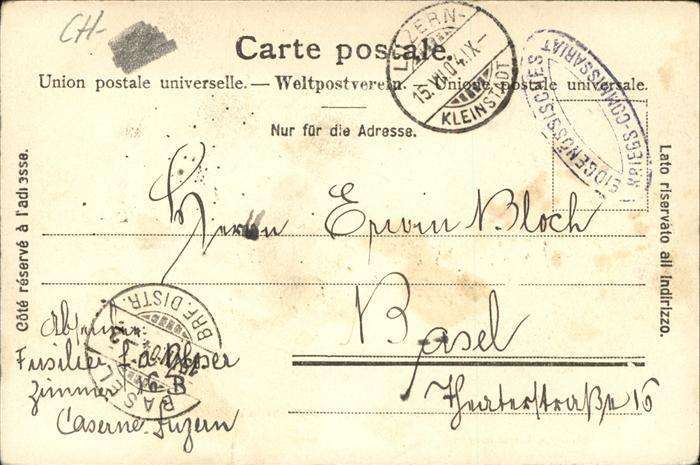 CH-
Carte postale.
Union postale universelle. — Weltpostverein. — Unione postale universale.
Nur für die Adresse.
LUZERN-
15.VI.04.IX-
KLEINSTADT
EIDGENÖSSISCHES
KRIEGS-COMMISSARIAT
Côté réservé à l'adresse.
Lato riservato all indirizzo.
Herrn Erwin Bloch
Basel
Theaterstraße 16
BASEL
BRF. DISTR.
Absender:
Fusilier
Zimmer 16 B
Caserne Luzern